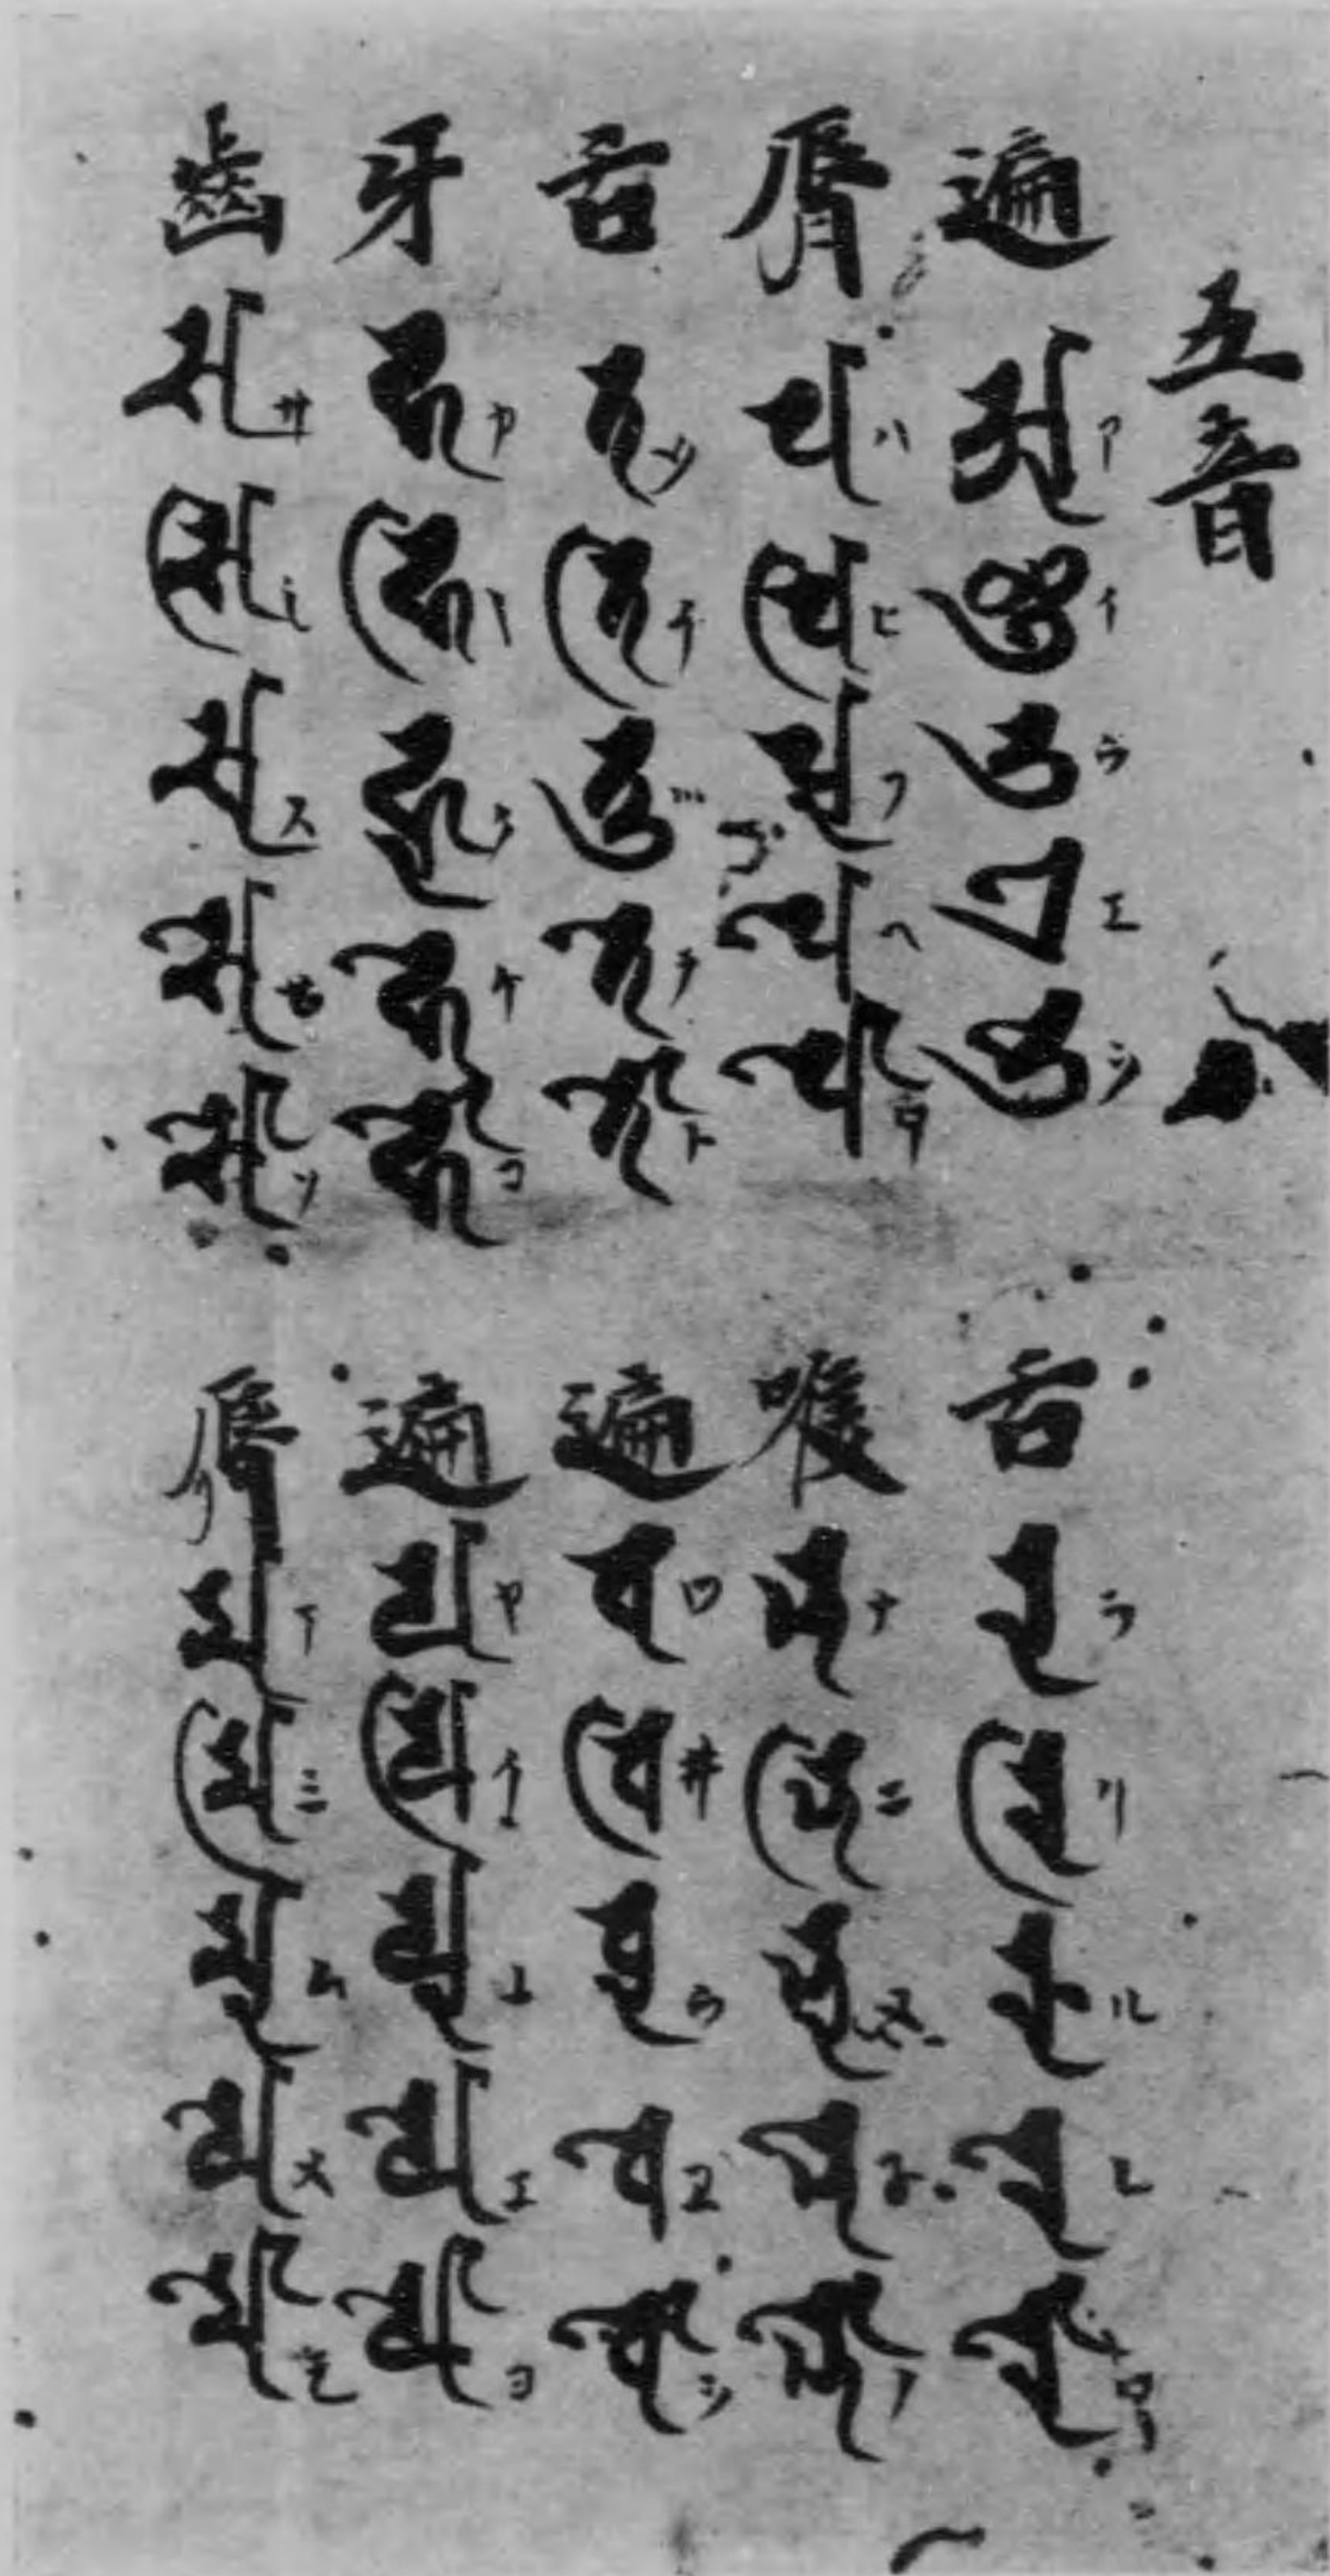 五音
遍 𑖀ア 𑖂イ 𑖄ウ 𑖊エ 𑖌ヲ
脣 𑖢ハ 𑖢𑖰ヒ 𑖢𑖲フ 𑖢𑖸ヘ 𑖢𑖺ホ
舌 𑖝タ 𑖝𑖰チ 𑖝𑖲ツ 𑖝𑖸テ 𑖝𑖺ト
牙 𑖎カ 𑖎𑖰キ 𑖎𑖲ク 𑖎𑖸ケ 𑖎𑖺コ
齒 𑖭サ 𑖭𑖰シ 𑖭𑖲ス 𑖭𑖸セ 𑖭𑖺ソ
舌 𑖨ラ 𑖨𑖰リ 𑖨𑖲ル 𑖨𑖸レ 𑖨𑖺ロ
喉 𑖡ナ 𑖡𑖰ニ 𑖡𑖲ヌ 𑖡𑖸ネ 𑖡𑖺ノ
遍 𑖪ワ 𑖪𑖰ヰ 𑖪𑖲ウ 𑖪𑖸ヱ 𑖪𑖺ヲ
遍 𑖧ヤ 𑖧𑖰イ 𑖧𑖲ユ 𑖧𑖸エ 𑖧𑖺ヨ
脣 𑖦マ 𑖦𑖰ミ 𑖦𑖲ム 𑖦𑖸メ 𑖦𑖺モ